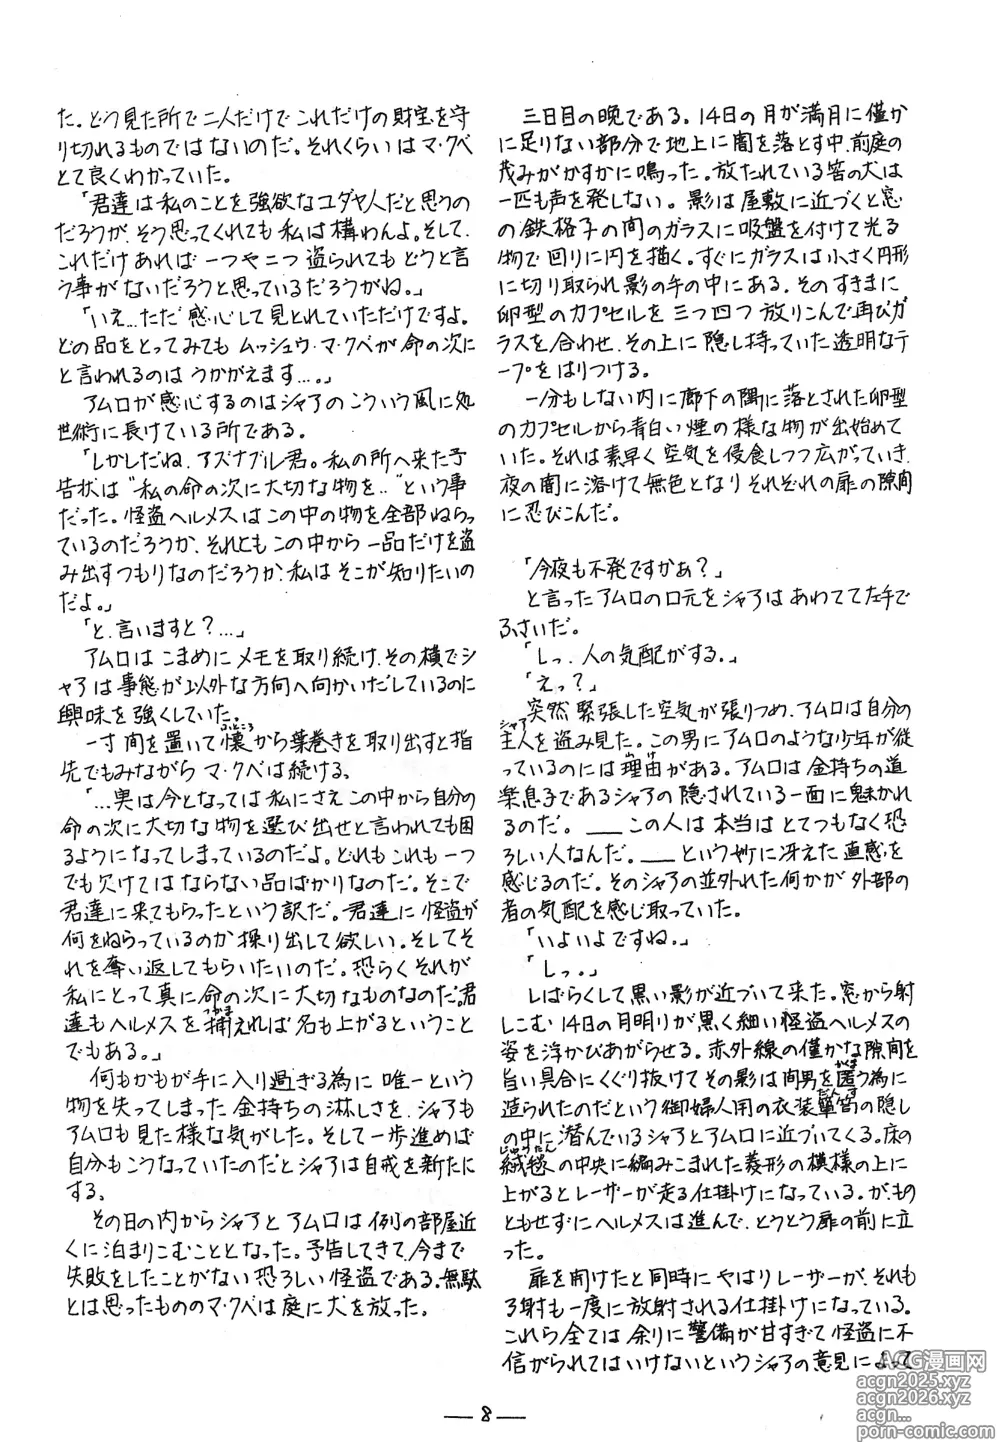 た。どう見た所で二人だけでこれだけの財宝を守
り切れるものではないのだ。それくらいはマ・クベ
とて良くわかっていた。
「君達は私のことを強欲なユダヤ人だと思うの
だろうが、そう思ってくれても私は構わんよ。そして、
これだけあれば一つや二つ盗られてもどうと言
う事がないだろうと思っているだろうがね。」
「いえ…ただ感心して見とれていただけですよ。
どの品をとってみてもムッシュウ・マ・クベが命の次に
と言われるのはうかがえます…。」
アムロが感心するのはシャアのこういう風に処
世術に長けている所である。
「しかしだね、アズナブル君。私の所へ来た予
告状は“私の命の次に大切な物を‥”という事
だった。怪盗ヘルメスはこの中の物を全部ねらっ
ているのだろうか、それともこの中から一品だけを盗
み出すつもりなのだろうか、私はそこが知りたいの
だよ。」
「と、言いますと?…」
アムロはこまめにメモを取り続け、その横でシ
ャアは事態が以外な方向へ向かいだしているのに
興味を強くしていた。
一寸間を置いて懐から葉巻きを取り出すと指
ふところ
先でもみながらマ・クベは続ける、
「…実は、今となっては私にさえこの中から自分の
命の次に大切な物を選び出せと言われても困
るようになってしまっているのだよ。どれもこれも一つ
でも欠けてはならない品ばかりなのだ。そこで
君達に来てもらったという訳だ。君達に怪盗が
何をねらっているのか探り出して欲しい。そしてそ
れを奪い返してもらいたいのだ。恐らくそれが
私にとって真に命の次に大切なものなのだ。君
達もヘルメスを捕えれば名も上がるということ
つかま
でもある。」
何もかもが手に入り過ぎる為に唯一という
物を失ってしまった金持ちの淋しさを、シャアも
アムロも見た様な気がした。そして一歩進めば
自分もこうなっていたのだとシャアは自戒を新たに
する。
その日の内からシャアとアムロは例の部屋近
くに泊まりこむこととなった。予告してきて、今まで
失敗をしたことがない恐ろしい怪盗である。無駄
とは思ったもののマ・クベは庭に犬を放った。
三日目の晩である。14日の月が満月に僅か
に足りない部分で地上に闇を落とす中、前庭の
茂みがかすかに鳴った。放たれている筈の犬は
一匹も声を発しない。影は屋敷に近づくと窓
の鉄格子の間のガラスに吸盤を付けて光る
物で回りに円を描く。すぐにガラスは小さく円形
に切り取られ影の手の中にある。そのすきまに
卵型のカプセルを三つ四つ放りこんで再びガ
ラスを合わせ、その上に隠し持っていた透明なテ
ープをはりつける。
一分もしない内に廊下の隅に落とされた卵型
のカプセルから青白い煙の様な物が出始めて
いた。それは素早く空気を侵食しつつ広がっていき、
夜の闇に溶けて無色となりそれぞれの扉の隙間
に忍びこんだ。
「今夜も不発ですかあ?」
と言ったアムロの口元をシャアはあわてて左手で
ふさいだ。
「しっ、人の気配がする。」
「えっ?」
突然緊張した空気が張りつめ、アムロは自分の
シャア
主人を盗み見た。この男にアムロのような少年が従
っているのには理由がある。アムロは金持ちの道
わけ
楽息子であるシャアの隠されている一面に魅かれ
るのだ。――この人は本当はとてつもなく恐
ろしい人なんだ。――という妙に冴えた直感を
感じるのだ。そのシャアの並外れた何かが外部の
者の気配を感じ取っていた。
「いよいよですね。」
「しっ。」
しばらくして黒い影が近づいて来た。窓から射
しこむ14日の月明りが黒く細い怪盗ヘルメスの
姿を浮かびあがらせる。赤外線の僅かな隙間を
旨い具合にくぐり抜けてその影は間男を匿う為に
かくま
造られたのだという御婦人用の衣装簞笥の隠し
だんす
の中に潜んでいるシャアとアムロに近づいてくる。床の
じゅうたん
絨毯の中央に編みこまれた菱形の模様の上に
上がるとレーザーが走る仕掛けになっている。がもの
ともせずにヘルメスは進んで、とうとう扉の前に立
った。
扉を開けたと同時にやはりレーザーが、それも
3射も一度に放射される仕掛けになっている。
これら全ては余りに警備が甘すぎて怪盗に不
信がられてはいけないというシャアの意見によって
― 8 ―
ACG漫画网
acgn2025.xyz
acgn2026.xyz
acgn...
porn-comic.com